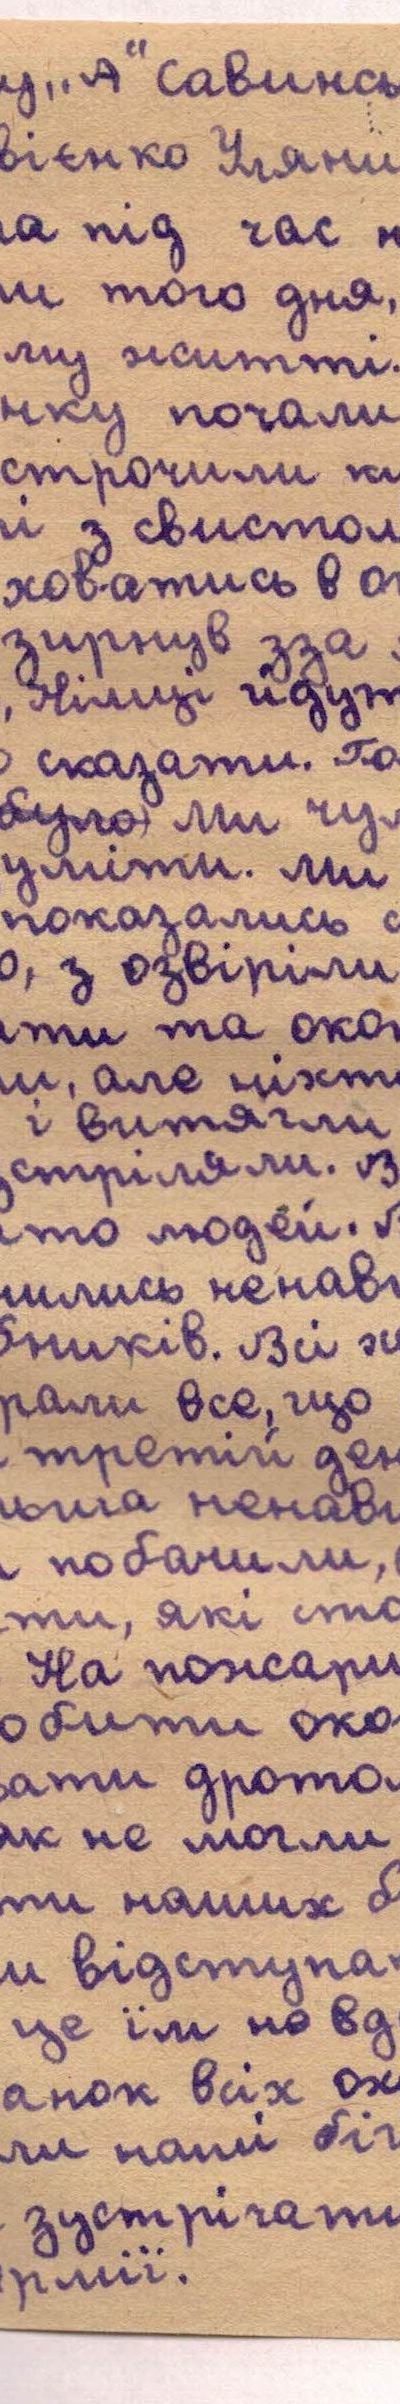 у „А" Савинсь
вієнко Уляни
та під час н
ти того дня,
му житті.
нку почали
строчили ку
і з свистом
ховатись в ок
зирнув зза
, Німці йдут
о сказати. Та
було) ми чул
уміти. Ми
показались с
о, з озвіріли
ати та окоп
ли, але ніхто
і витягли
зстріляли. В
ято людей. В
нились ненави
бників. Всі ж
рали все, що
третій ден
льша ненави
и побачили,
ти, які сто
На пожари
обити око
вати дротом
ак не могли
ти наших б
и відступа
це їм не вда
анок всіх ок
ли наші бі
зустрічати
рмії.